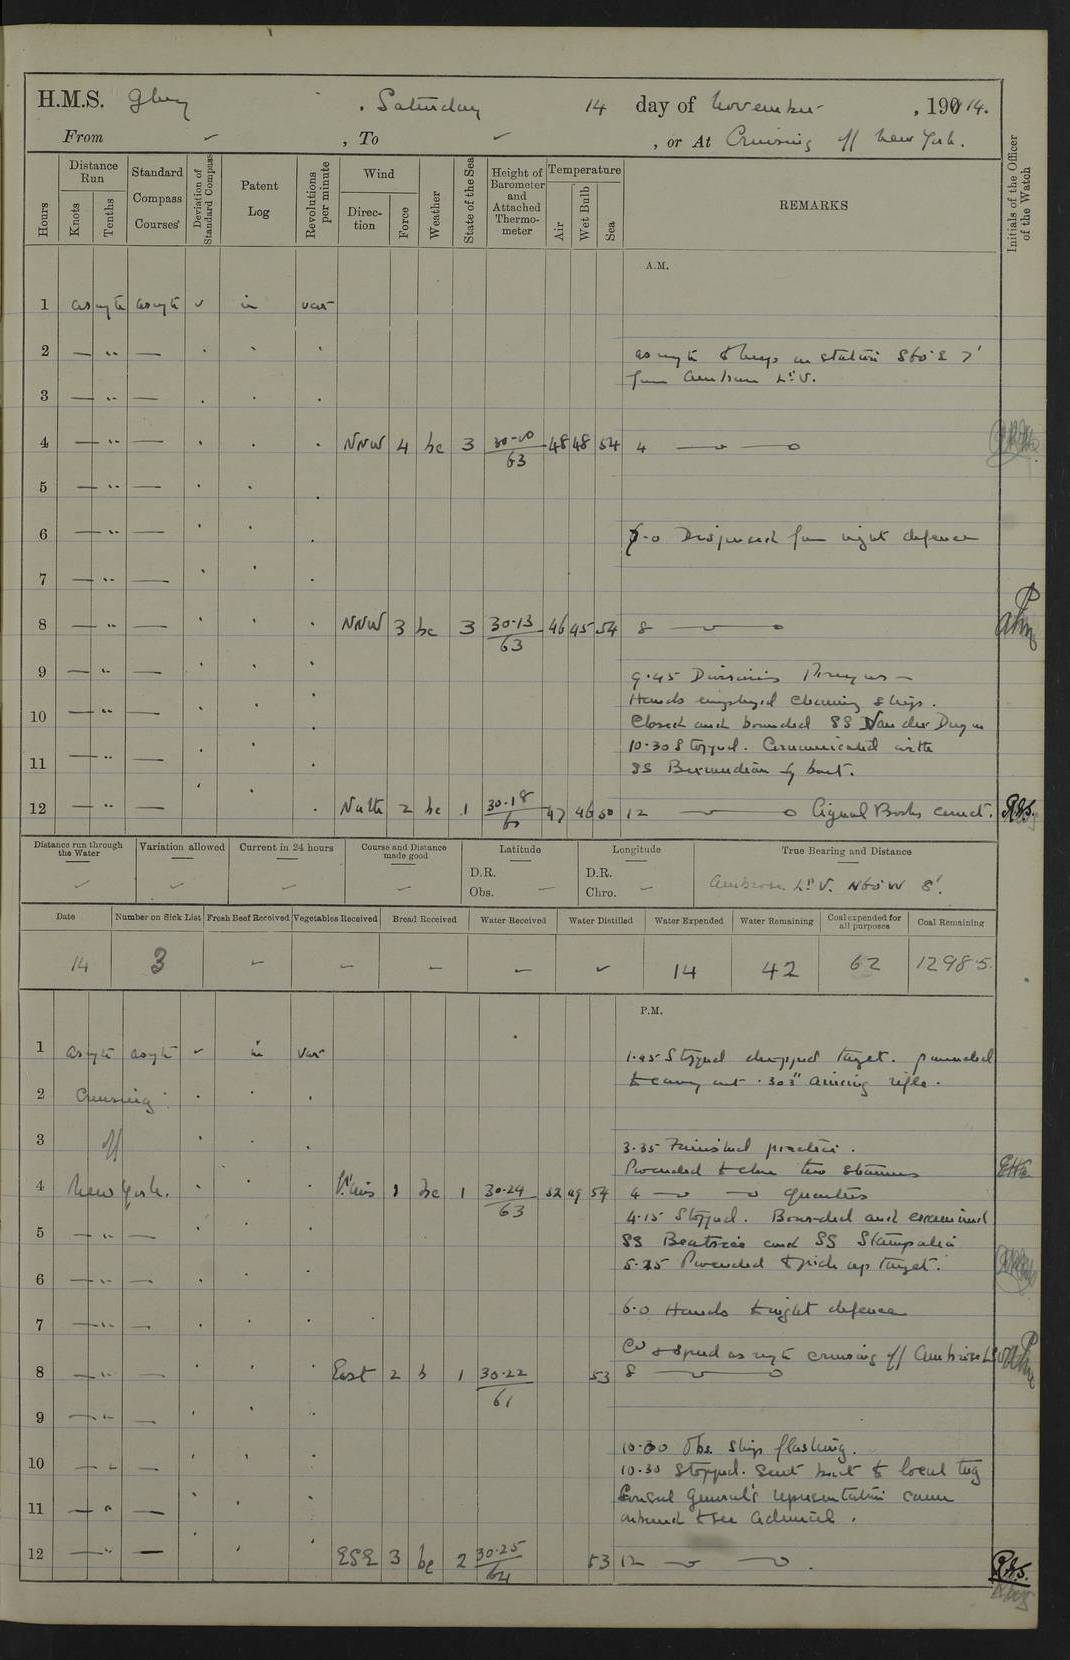 H.M.S. Glory , Saturday 14 day of November , 1914.
From ✓ , To ✓ , or At Cruising off New York.
Hours
Distance Run
Knots
Tenths
Standard Compass Courses
Deviation of Standard Compass
Patent Log
Revolutions per minute
Wind
Direction
Force
Weather
State of the Sea
Height of Barometer and Attached Thermometer
Temperature
Air
Wet Bulb
Sea
REMARKS
Initials of the Officer of the Watch
A.M.
1 as reqte as reqte ✓ in var
2 — " — as reqte to keep on station S60°E 7'
from Ambrose Lt V.
3 — " —
4 — " — NNW 4 bc 3 30·10/63 48 48 54 4
5 — " —
6 — " — 6·0 Dispersed from night defence
7 — " —
8 — " — NNW 3 bc 3 30·13/63 46 45 54 8
9 — " — 9·45 Divisions Prayers —
Hands employed cleaning ship.
10 — " — Closed and boarded SS Van der Duyn
10·30 Stopped. Communicated with
11 — " — SS Bermudian by boat.
12 — " — North 2 bc 1 30·18/ 47 46 50 12 Signal Books correct. RHS.
Distance run through the Water
Variation allowed
Current in 24 hours
Course and Distance made good
Latitude
D.R.
Obs. —
Longitude
D.R.
Chro. —
True Bearing and Distance
Ambrose Lt V. N60W 8'.
Date
Number on Sick List
Fresh Beef Received
Vegetables Received
Bread Received
Water Received
Water Distilled
Water Expended
Water Remaining
Coal expended for all purposes
Coal Remaining
14 3 — — — — ✓ 14 42 62 1298·5
P.M.
1 as reqte as reqte ✓ in var 1·45 Stopped dropped target. proceeded
to carry out .303" aiming rifle.
2 Cruising
3 off 3·35 Finished practice.
Proceeded to close two steamers
4 New York. V.airs 1 bc 1 30·24/63 52 49 54 4 Quarters
4·15 Stopped. Boarded and examined
5 — " — SS Beatrice and SS Stampalia
5·25 Proceeded to pick up target.
6 — " —
6·0 Hands to night defence
7 — " —
Co & speed as reqte cruising off Ambrose Lt V
8 — " — East 2 b 1 30·22/61 53 8
9 — " —
10·30 Obs. ship flashing.
10 — " — 10·30 Stopped. Sent boat to local tug
Consul General's representative came
11 — " — onboard to see Admiral.
12 — " — ESE 3 bc 2 30·25/64 53 12 RHS.